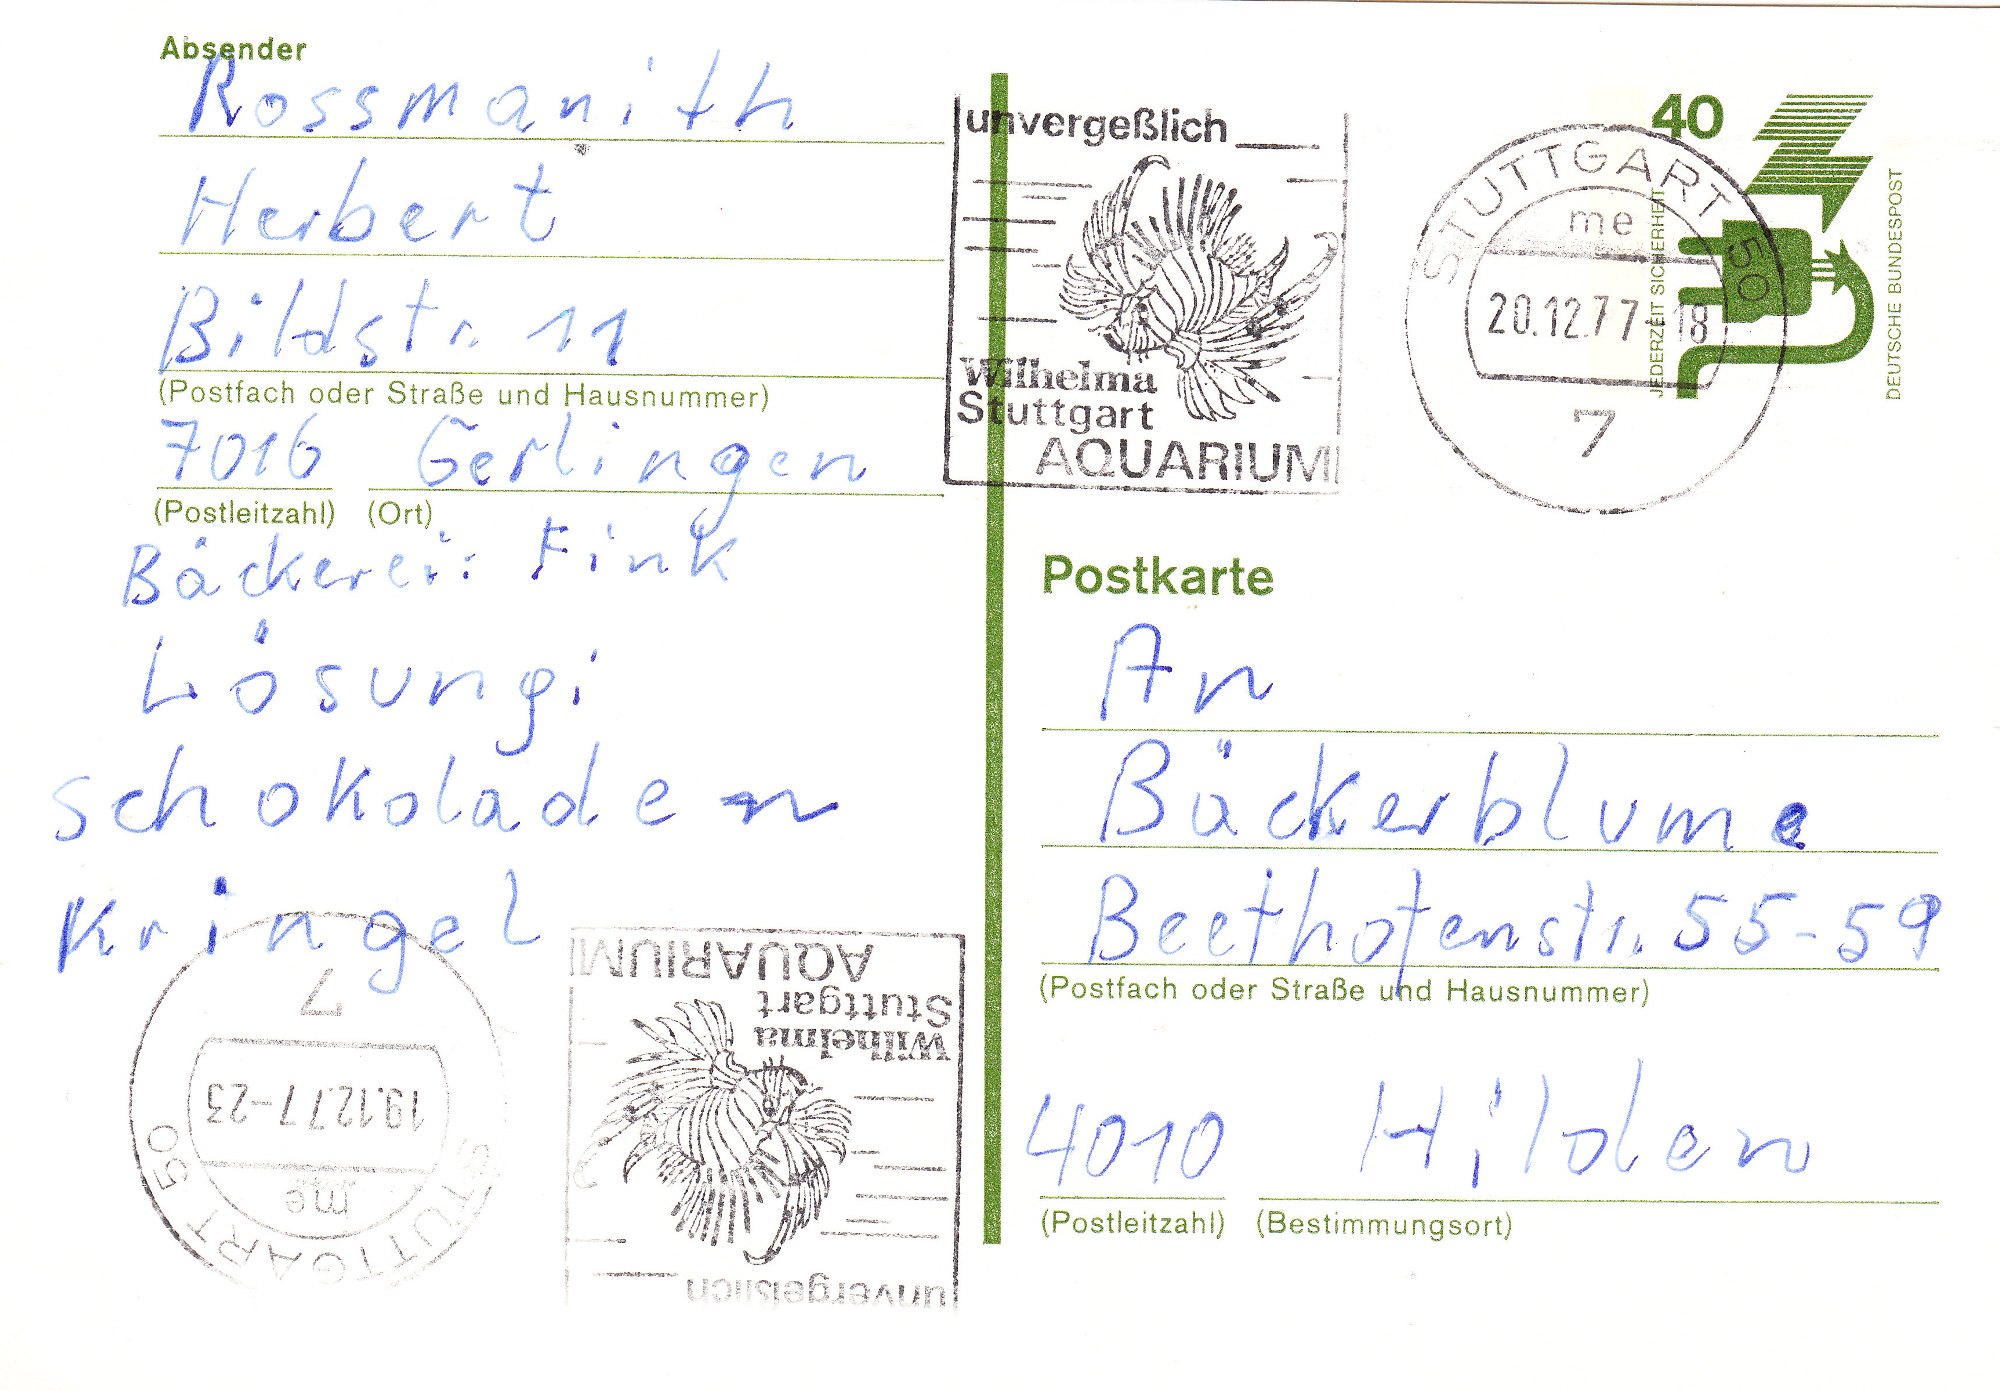 Absender
Rossmanith
Herbert
Bildstr. 11
(Postfach oder Straße und Hausnummer)
7016 Gerlingen
(Postleitzahl) (Ort)
Bäckerei: Fink
Lösung:
schokoladen
Kringel
unvergeßlich
Wilhelma
Stuttgart
AQUARIUM
STUTTGART 50
me
20.12.77-18
7
40
JEDERZEIT SICHERHEIT
DEUTSCHE BUNDESPOST
Postkarte
An
Bäckerblume
Beethofenstr. 55-59
(Postfach oder Straße und Hausnummer)
4010 Hilden
(Postleitzahl) (Bestimmungsort)
STUTTGART 50
me
19.12.77-23
7
unvergeßlich
Wilhelma
Stuttgart
AQUARIUM